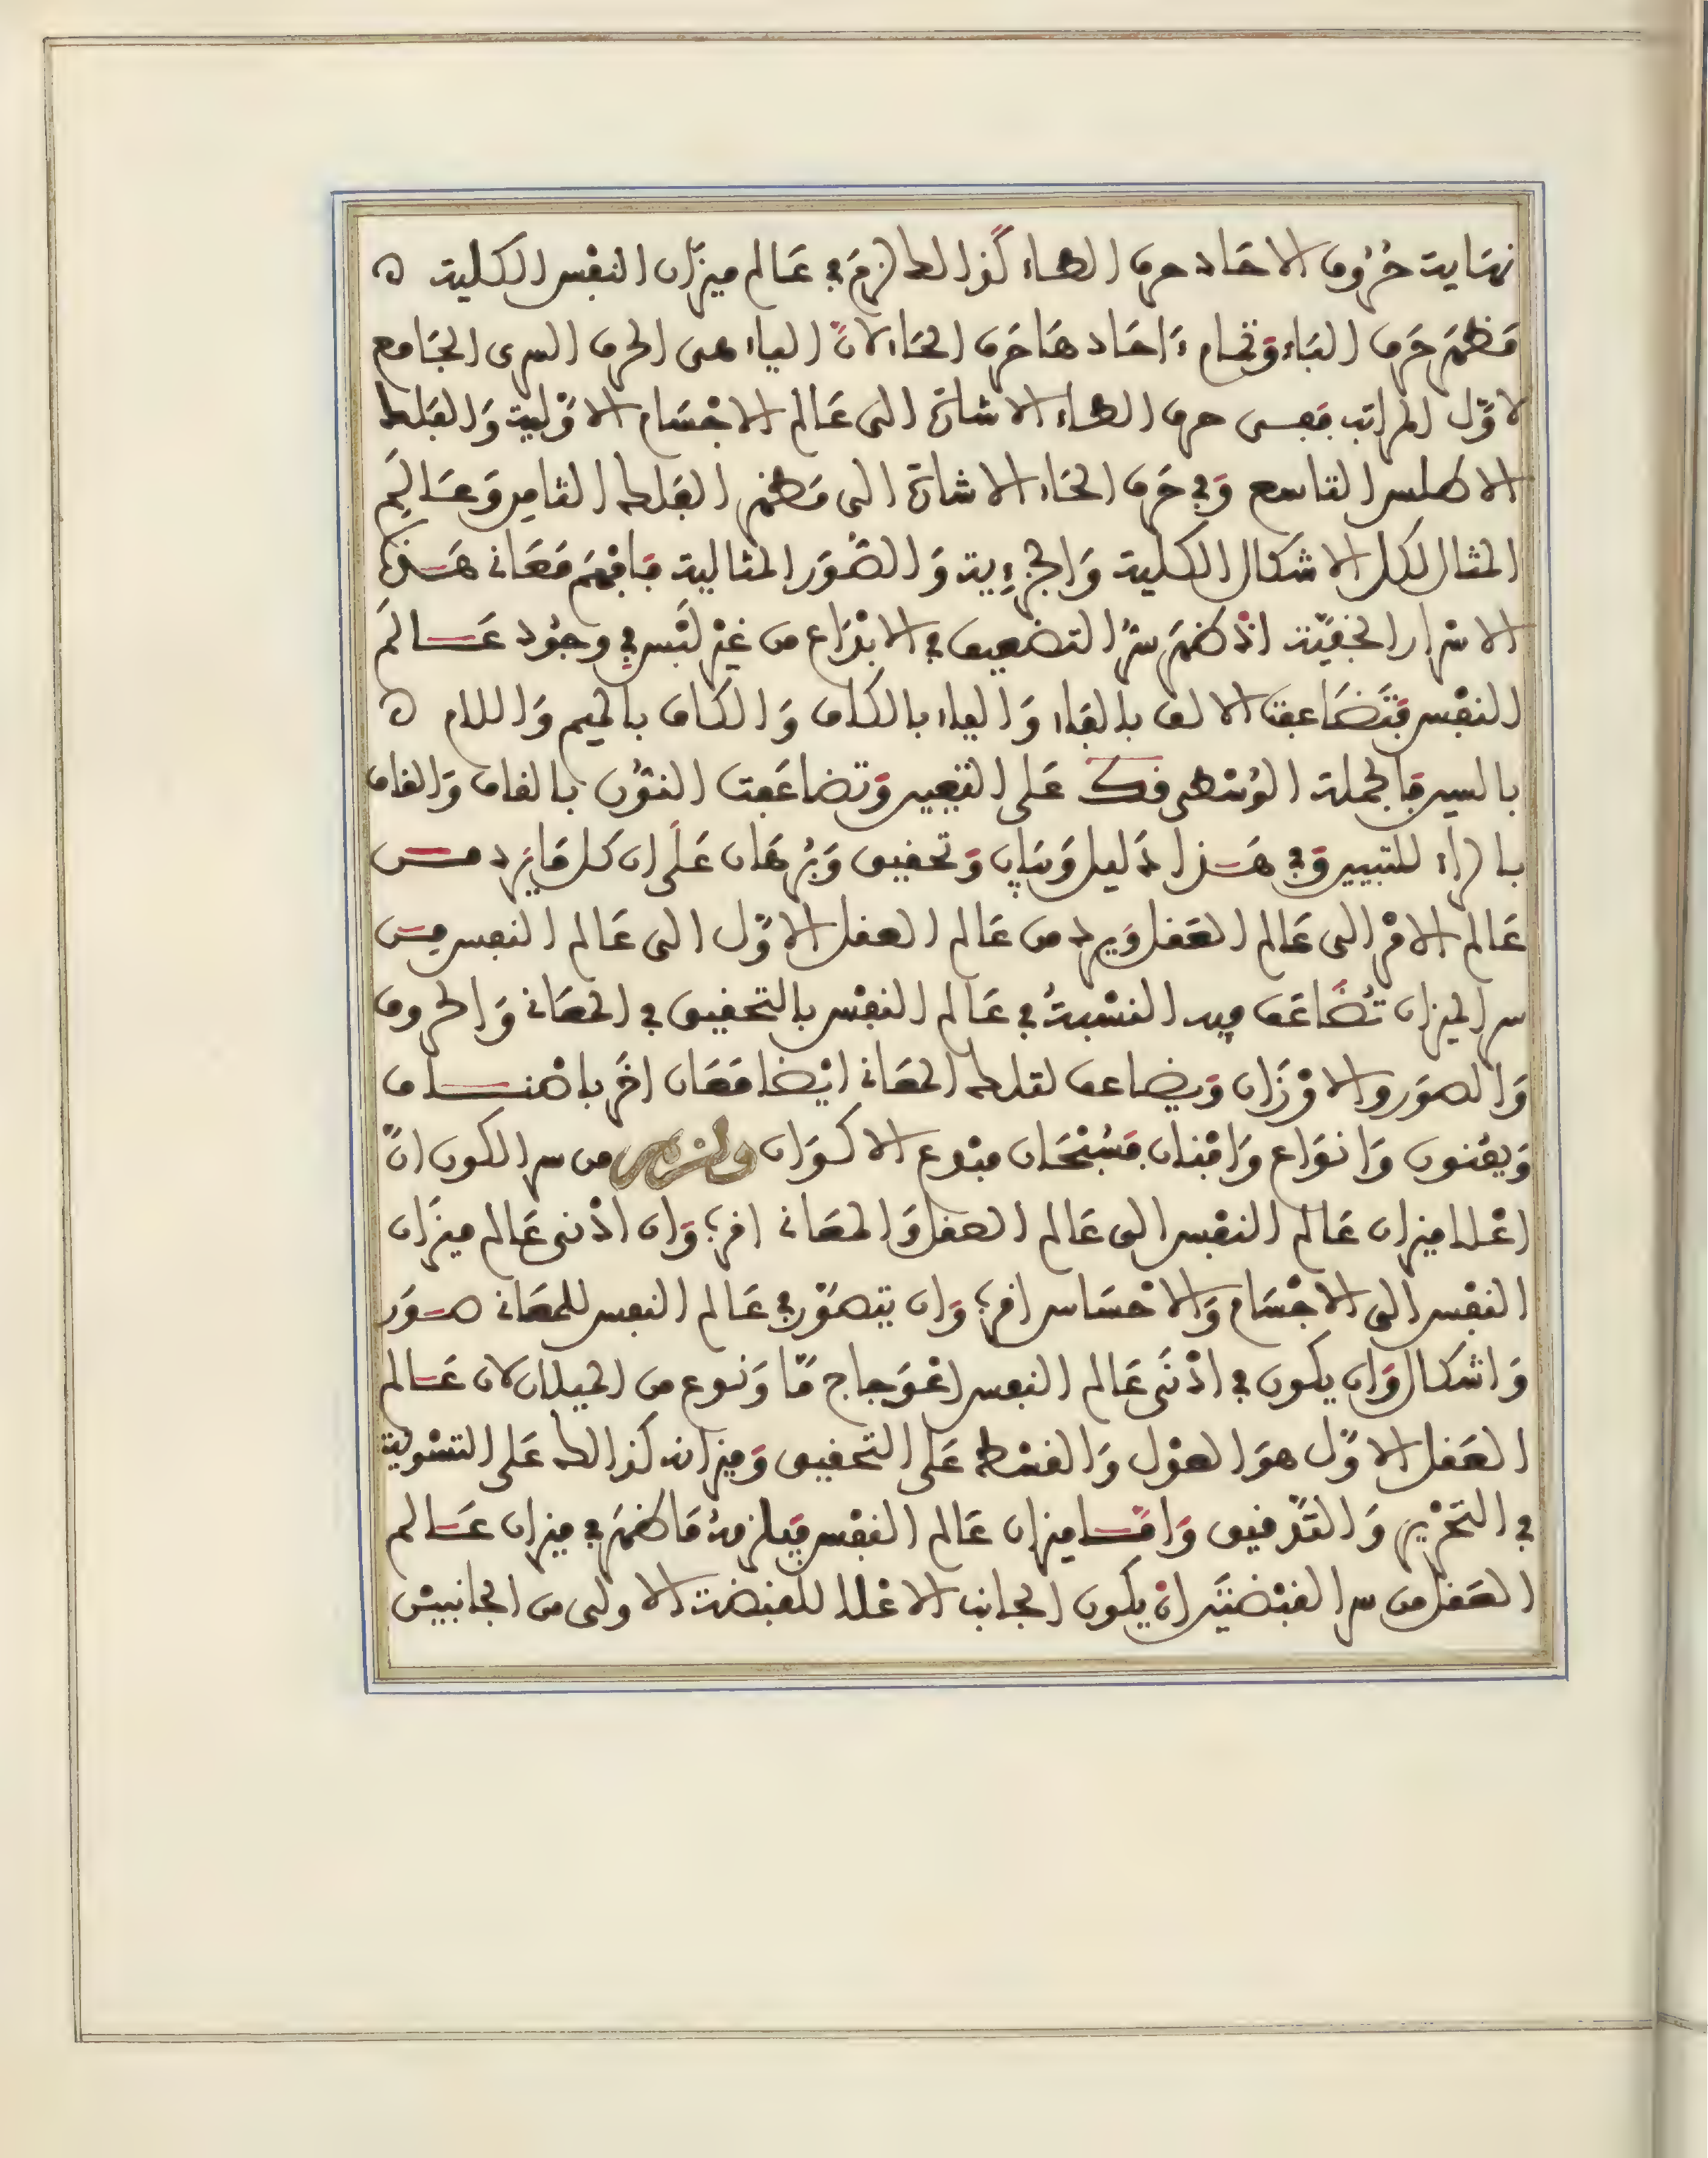 نهاية حُرُوف الاحَاد حرف الطاء كَذالك لزمَ في عَالم ميزَان النفْس الكلية ه
مَظهَر حَرف البَاء وَتمام ءَاحَادهَا حَرف الحَاء لانَّ الياء هى الحرف السرى الجَامع
لاوَّل المراتب فبفى حرف الطاء الاشارة الى عَالم الاجْسَام الاوَّلية وَالفلك
الاطلس التاسع وَفي حَرف الحَاء الاشارة الى مَظهر الفلك الثامن وَعَالَم
المثال لكل الاشكال الكلية وَالجزءية وَالصُّوَر المثالية فافهَم مَعَانى هَذه
الاسْرار الخفيَّة اذْ ظهَر سرُّ التضعيف في الابْدَاع من غيْر لَبْس في وجُود عَالَم
النفْس فتَضَاعفت الالف بالبَاء وَالياء بالكاف وَالكَاف بالميم وَاللام ه
بالسين فالجملة الوُسْطى فكـ عَلى التعيين وَتضاعَفت النُّون بالقاف وَالقاف
بالراء للتبيين وَفي هَذا دَليل وَبيَان وَتحقيق وَبُرهَان عَلَى ان كل مَا يَرد من
عَالم الامْر الى عَالم العَقل وَيرد من عَالم العقل الاوَّل الى عَالم النفس من
سر الميزان تُضَاعَف فيه النسْبةُ في عَالم النفْس بالتحقيق في المعَانى وَالحروف
وَالصوَر والاوْزَان وَيضاعف لتلك المعَانى ايْضا مَعَان اخَر باصْناف
وَيفْنون وَانوَاع وَافْنان فسُبْحَان مبْدع الاكوَان ولزم من سر الكون انَّ
اعْلا ميزان عَالم النفْس الى عَالم العقل وَالمعَانى اقرب وَان ادْنى عَالم ميزَان
النفْس الى الاجْسَام وَالاحْسَاس اقرب وَان يتصوَّر في عَالم النفس للمعَانى صوَر
وَاشكال وَان يكون في ادْنَى عَالم النفس اعْوَجاج مَّا وَنوع من الميلان لان عَالم
العَقل الاوَّل هوَ العدْل وَالقسْط عَلى التحقيق وَميزانه كذالك عَلى التسْوية
في التحْرير وَالتَّدقيق وَامَّا ميزان عَالم النفْس فيلزمهُ مَا ظهَر في ميزان عَالم
العَقل من سر القبْضتيْن انْ يكون الجانب الاعْلا للقبْضة الاولى من الجانبيْن